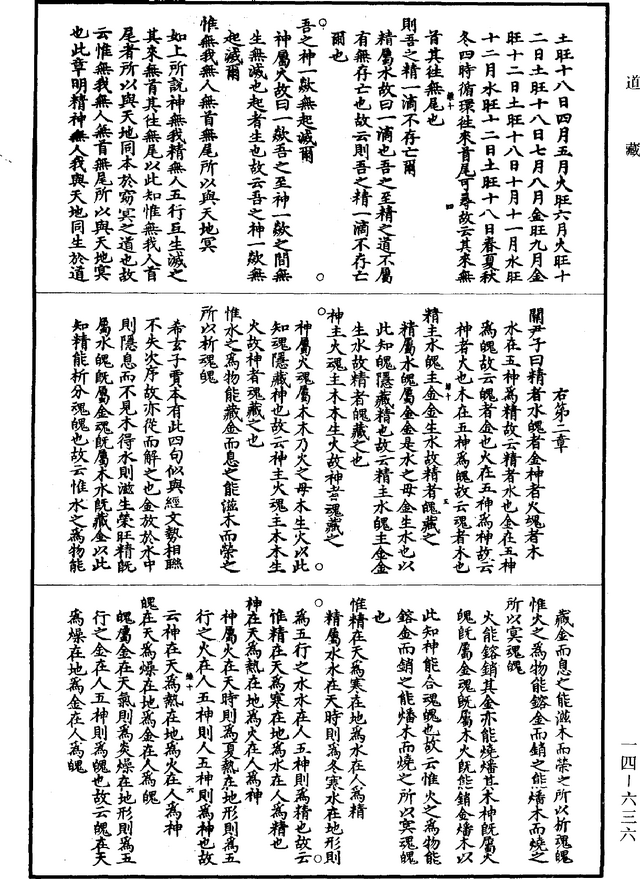 道藏
土旺十八日四月五月火旺六月火旺十
二日土旺十八日七月八月金旺九月金
旺十二日土旺十八日十月十一月水旺
十二月水旺十二日土旺十八日春夏秋
冬四時循環往來首尾可尋故云其來無
首其往無尾也
則吾之精一滴不存亡爾
精屬水故曰一滴也吾之至精之道不屬
有無存亡也故云則吾之精一滴不存亡
爾也
吾之神一欻無起滅爾
神屬火故曰一欻吾之至神一欻之間無
生無滅也起者生也故云吾之神一欻無
起滅爾
惟無我無人無首無尾所以與天地冥
如上所說神無我精無人五行互生滅之
其來無首其往無尾以此知惟無我人首
尾者所以與天地同本於窈冥之道也故
云惟無我無人無首無尾所以與天地冥
也此章明精神無人我與天地同生於道
右第二章
關尹子曰精者水魄者金神者火魂者木
水在五神爲精故云精者水也金在五神
爲魄故云魄者金也火在五神爲神故云
神者火也木在五神爲魂故云魂者木也
精主水魄主金金生水故精者魄藏之
精屬水魄屬金金是水之母金生水也以
此知魄隱藏精也故云精主水魄主金金
生水故精者魄藏之也
神主火魂主木木生火故神者魂藏之
神屬火魂屬木木乃火之母木生火以此
知魂隱藏神也故云神主火魂主木木生
火故神者魂藏之也
惟水之爲物能藏金而息之能滋木而榮之
所以析魂魄
希玄子賈本有此四句似與經文勢相聯
不失次序故亦從而解之也金放於水中
則隱息而不見木得水則滋生榮旺精旣
屬水魄旣屬金魂旣屬木水旣藏金以此
知精能析分魂魄也故云惟水之爲物能
藏金而息之能滋木而榮之所以析魂魄
惟火之爲物能鎔金而銷之能燔木而燒之
所以冥魂魄
火能鎔銷其金亦能燒燔其木神旣屬火
魄旣屬金魂旣屬木火旣能銷金燔木以
此知神能合魂魄也故云惟火之爲物能
鎔金而銷之能燔木而燒之所以冥魂魄
也
惟精在天爲寒在地爲水在人爲精
精屬水水在天時則爲冬寒水在地形則
爲五行之水水在人五神則爲精也故云
惟精在天爲寒在地爲水在人爲精也
神在天爲熱在地爲火在人爲神
神屬火在天時則爲夏熱在地形則爲五
行之火在人五神則人五神則爲神也故
云神在天爲熱在地爲火在人爲神
魄在天爲燥在地爲金在人爲魄
魄屬金在天氣則爲炎燥在地形則爲五
行之金在人五神則爲魄也故云魄在天
爲燥在地爲金在人爲魄
一四—六三六